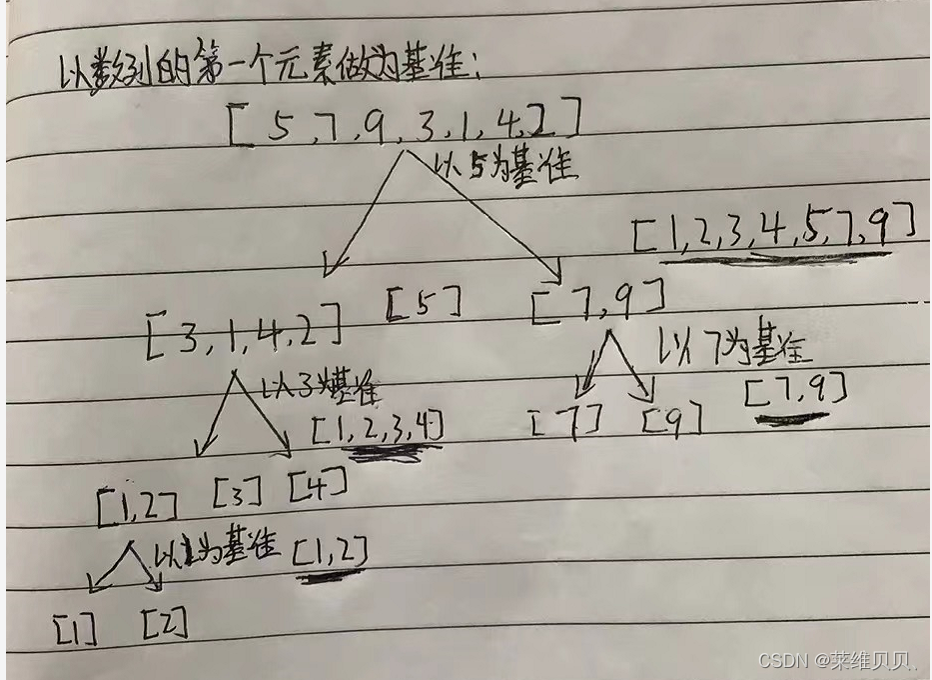 以数列的第一个元素做为基准:
[5,7,9,3,1,4,2]
以5为基准
[1,2,3,4,5,7,9]
[3,1,4,2] [5] [7,9]
以3为基准 以7为基准
[1,2,3,4] [7] [9] [7,9]
[1,2] [3] [4]
以1为基准 [1,2]
[1] [2]
CSDN @莱维贝贝、